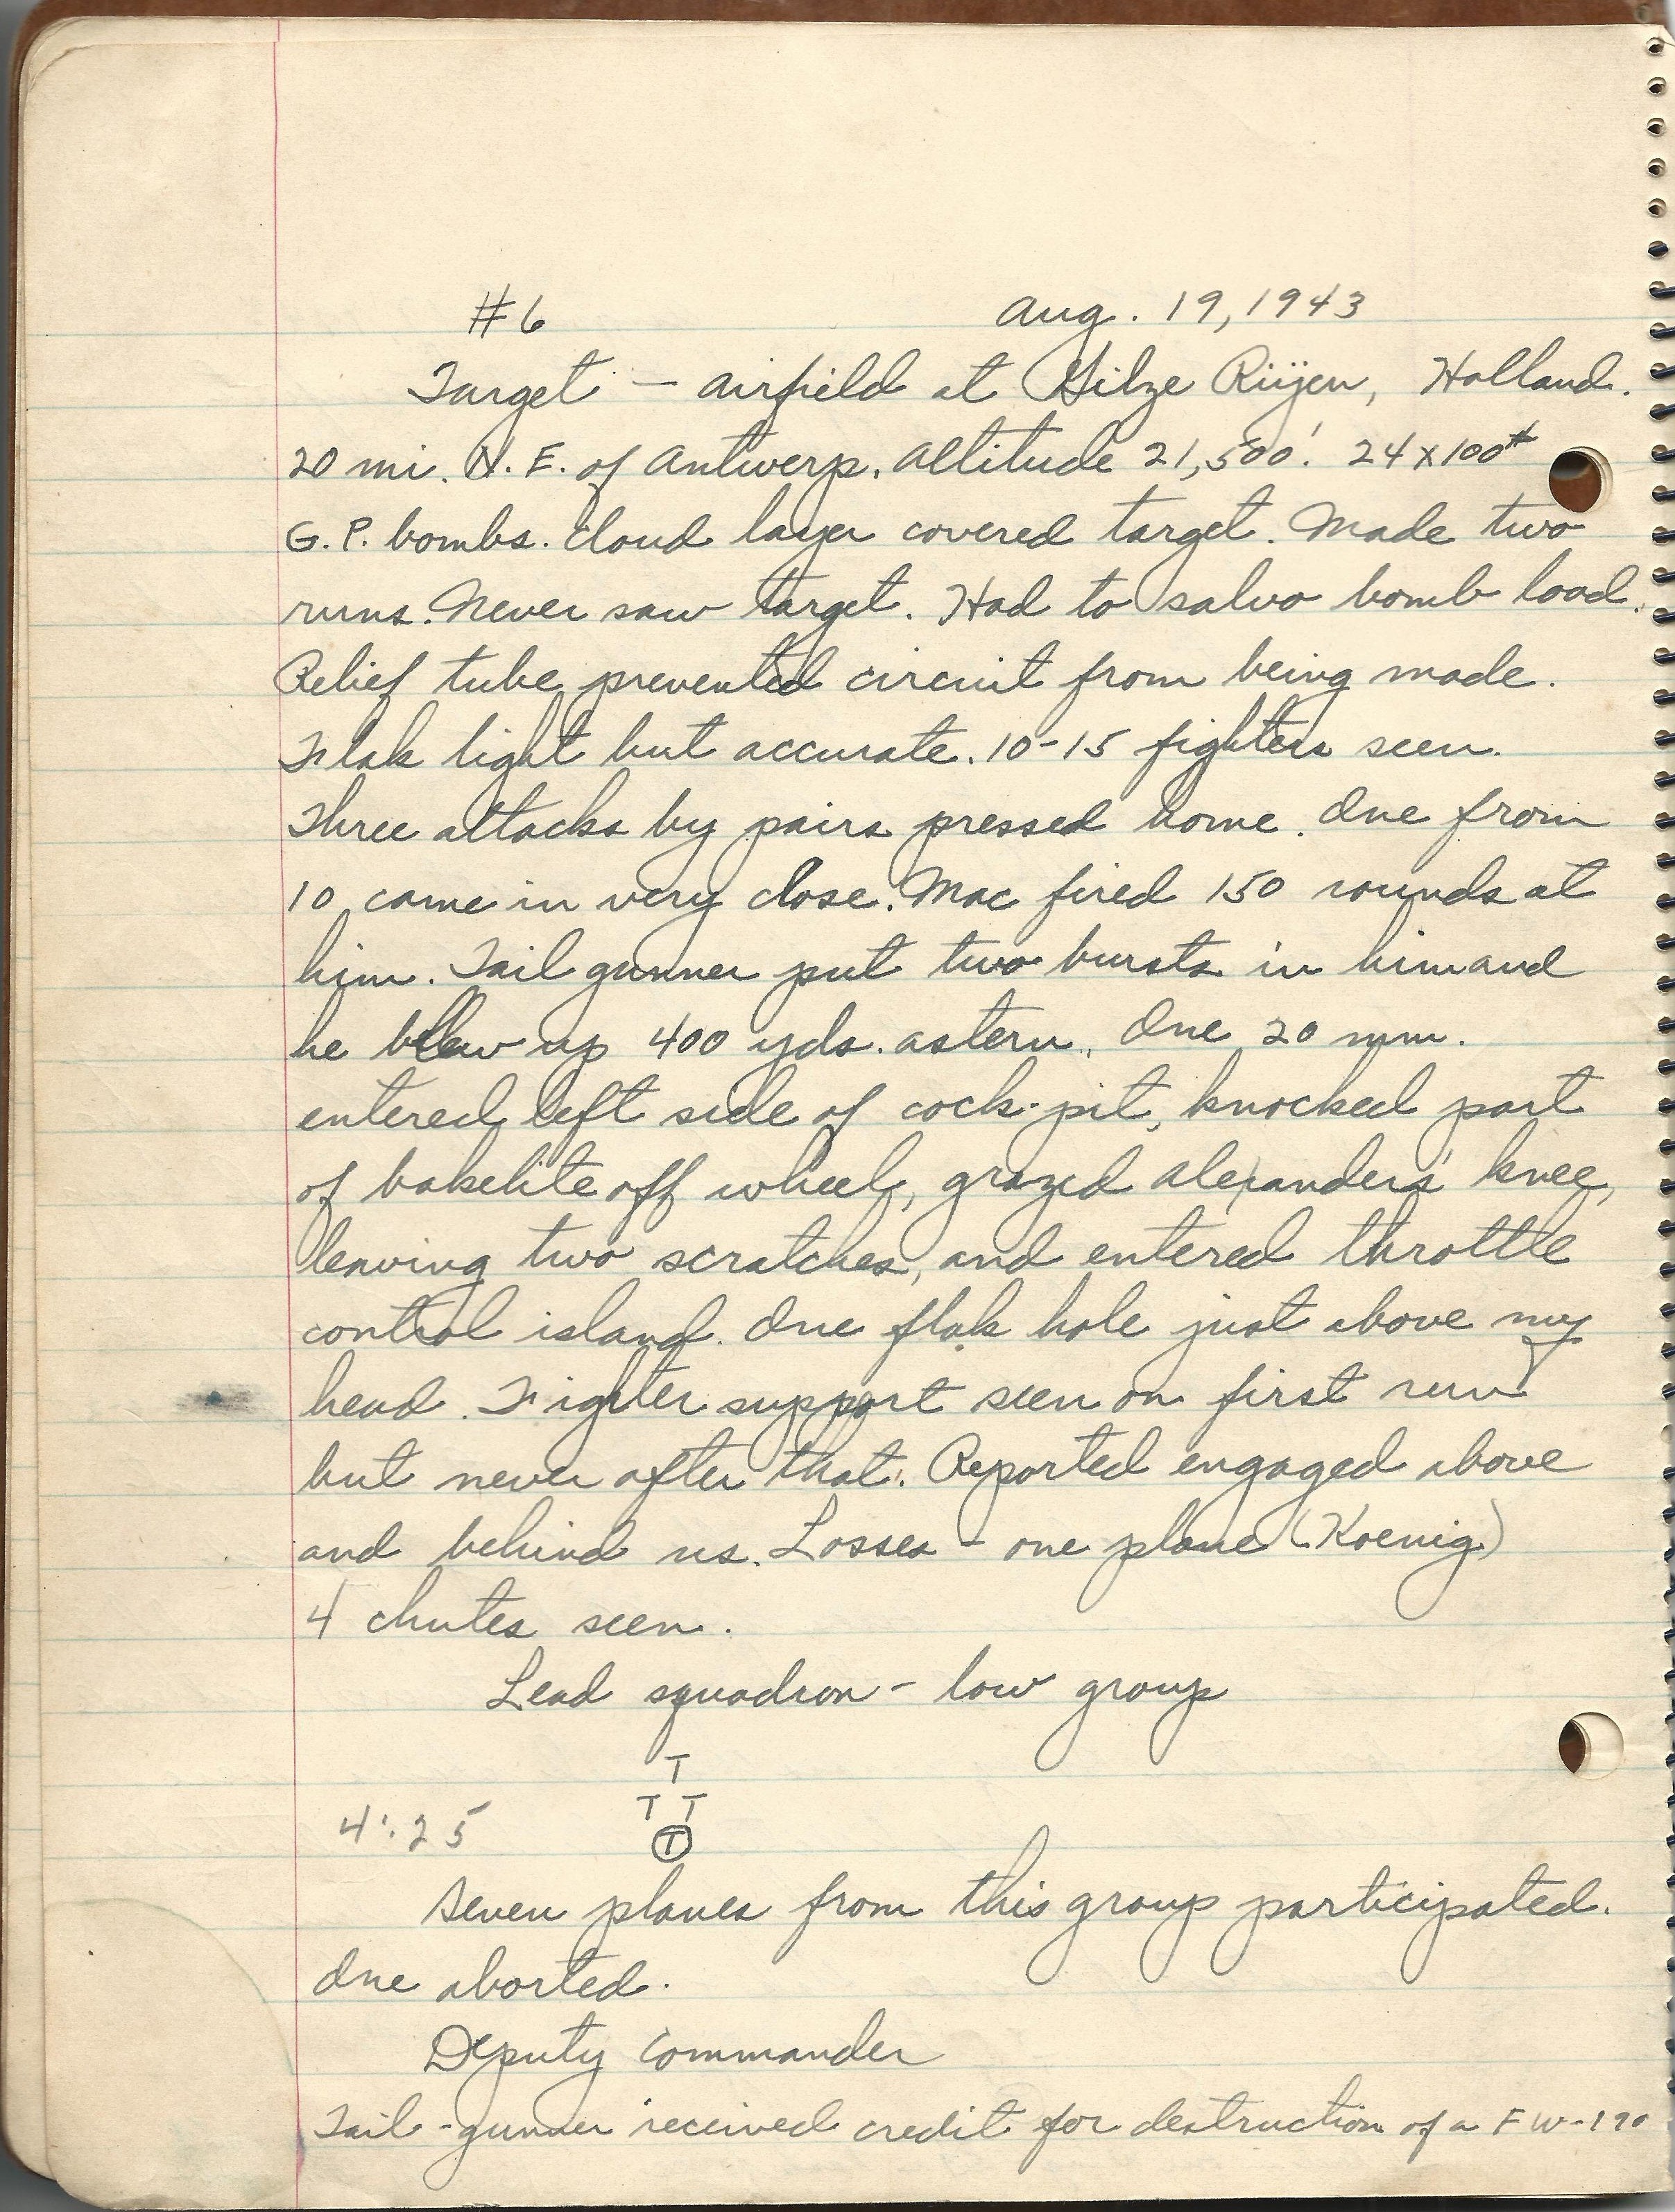 #6 Aug. 19, 1943
Target — airfield at Gilze Rijen, Holland.
20 mi. N. E. of Antwerp. Altitude 21,500'. 24 x 100#
G. P. bombs. Cloud layer covered target. Made two
runs. Never saw target. Had to salvo bomb load.
Relief tube prevented circuit from being made.
Flak light but accurate. 10-15 fighters seen.
Three attacks by pairs pressed home. One from
10 came in very close. Mac fired 150 rounds at
him. Tail gunner put two bursts in him and
he blew up 400 yds. astern. One 20 mm.
entered left side of cock-pit, knocked part
of bakelite off wheel, grazed Alexander's knee,
leaving two scratches, and entered throttle
control island. One flak hole just above my
head. Fighter support seen on first run
but never after that. Reported engaged above
and behind us. Losses - one plane (Koenig)
4 chutes seen.
Lead squadron - low group
T
T T
4:25 T
Seven planes from this group participated.
One aborted.
Deputy Commander
Tail-gunner received credit for destruction of a FW-190